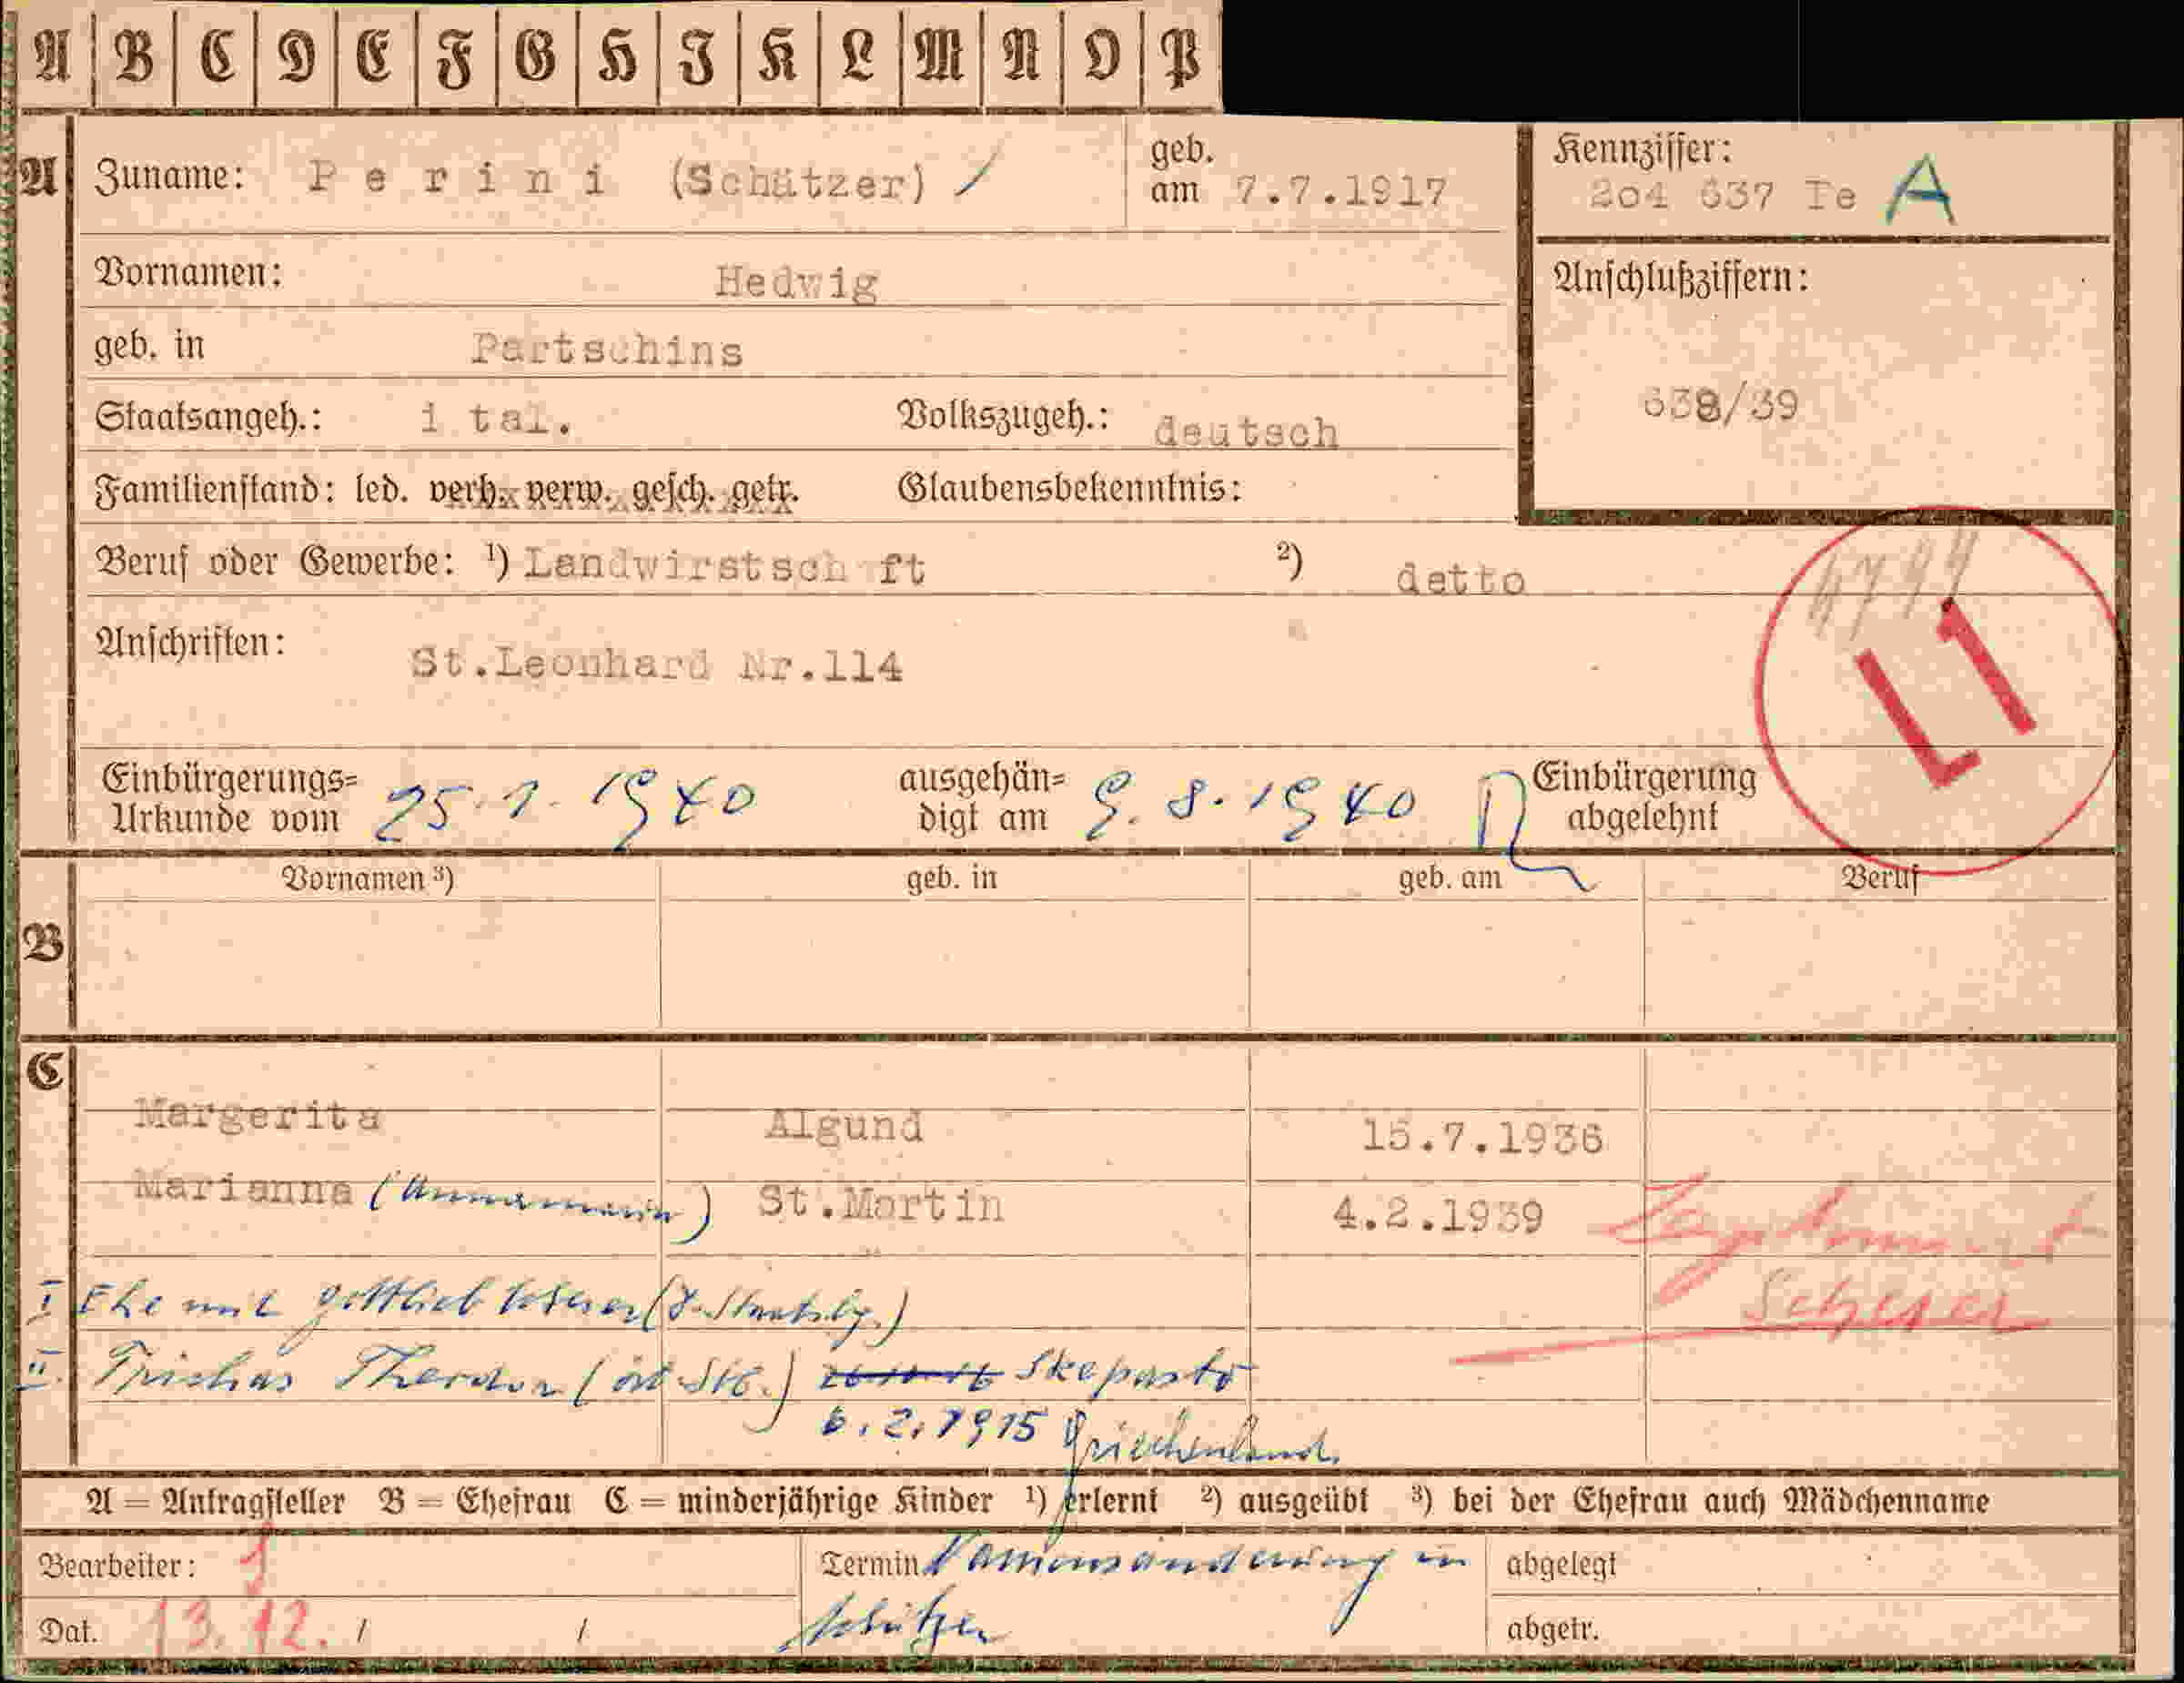 A B C D E F G H J K L M N O P
A Zuname: Perini (Schätzer) / geb. am 7.7.1917
Kennziffer: 204 637 Te A
Vornamen: Hedwig
Anschlußziffern:
geb. in Partschins
638/39
Staatsangeh.: ital. Volkszugeh.: deutsch
Familienstand: led. verh. verw. gesch. getr. Glaubensbekenntnis:
Beruf oder Gewerbe: ¹) Landwirstsch ft ²) detto
Anschriften: St.Leonhard Nr.114
L1
Einbürgerungs= Urkunde vom 25.1.1940 ausgehän= digt am 9.8.1940 Einbürgerung abgelehnt
B Vornamen ³) geb. in geb. am Beruf
C
Margerita Algund 15.7.1936
Marianna (Annamaria) St.Martin 4.2.1939
I Ehe mit Gottlieb
II. Theodor Skepasto
6.2.1915 Griechenland
A = Antragsteller B = Ehefrau C = minderjährige Kinder ¹) erlernt ²) ausgeübt ³) bei der Ehefrau auch Mädchenname
Bearbeiter: Termin Namensänderung in abgelegt
Dat. 13.12. / / Schätzer abgetr.